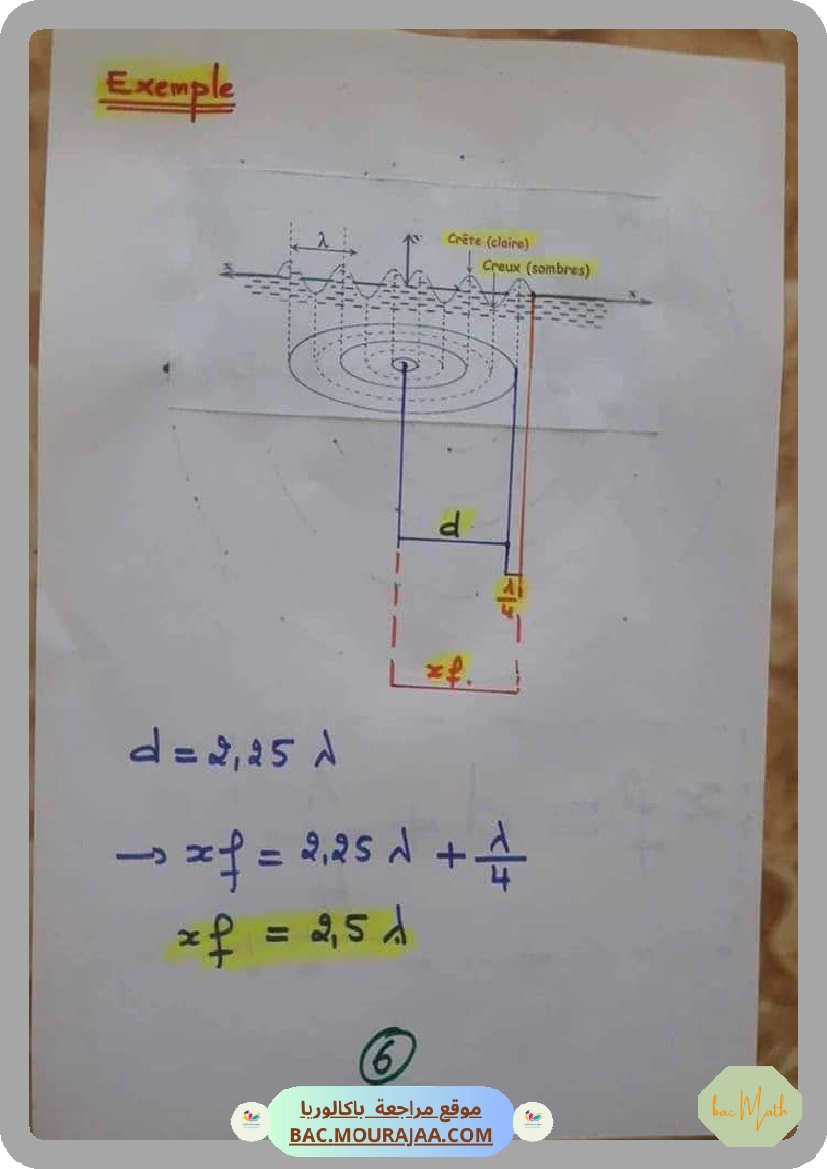 Exemple
λ
y
Crête (claire)
Creux (sombres)
x
x
d
λ/4
xf
d = 2,25 λ
→ xf = 2,25 λ + λ/4
xf = 2,5 λ
6
موقع مراجعة باكالوريا
BAC.MOURAJAA.COM
bac Math